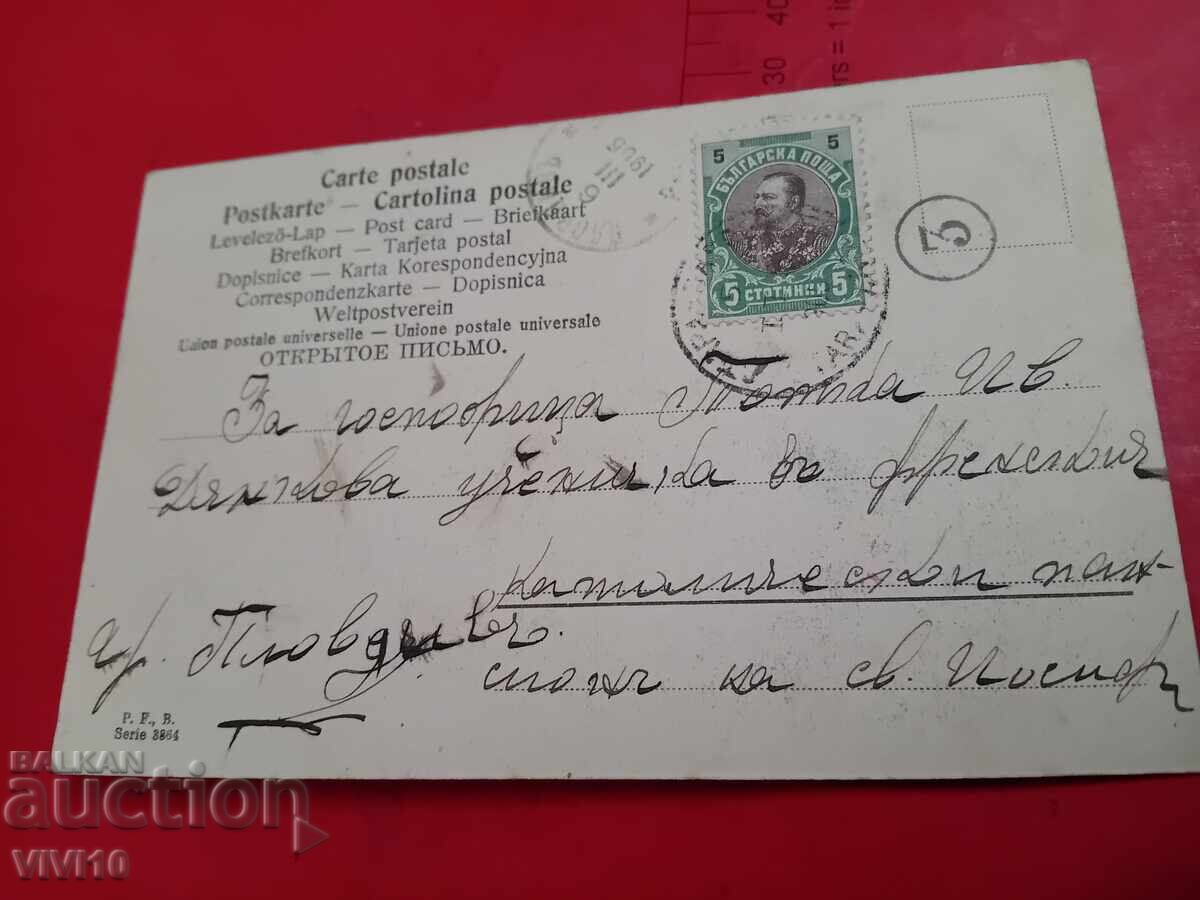 Carte postale
Postkarte — Cartolina postale
Levelező-Lap — Post card — Briefkaart
Brefkort — Tarjeta postal
Dopisnice — Karta Korespondencyjna
Correspondenzkarte — Dopisnica
Weltpostverein
Union postale universelle — Unione postale universale
ОТКРЫТОЕ ПИСЬМО.
5 5
БЪЛГАРСКА ПОЩА
5 СТОТИНКИ 5
9 III 1906
3
30 40
= 1 in
За господрица Тотка Ив.
Дянкова ученичка въ френския
католически пан-
сионъ на св. Иосифъ
гр. Пловдивъ.
P. F., B.
Serie 3864
BALKAN
auction
VIVI10